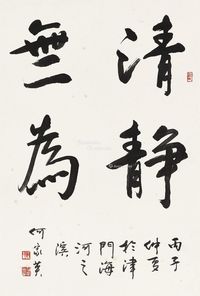 清静
無為
丙子
仲夏
於津
門海
河之
濱
何家英